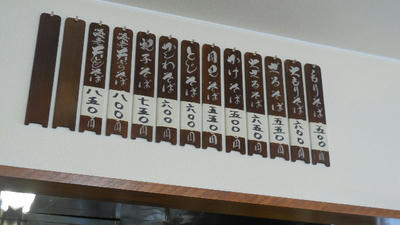 もりそば 五〇〇円
大もりそば 六〇〇円
ざるそば 五五〇円
大ざるそば 六五〇円
かけそば 五〇〇円
月見そば 五五〇円
とじそば 六〇〇円
かわそば 六〇〇円
そば 七五〇円
そば 八〇〇円
そば 八五〇円